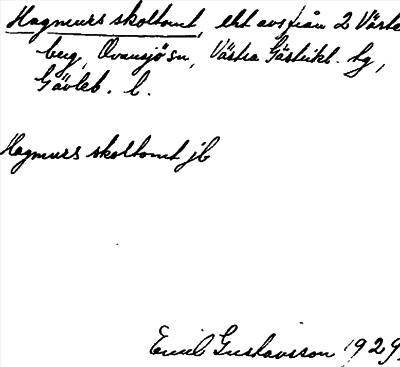 Hagmurs skoltomt, ekt avs från 2 Väster
berg, Ovansjö sn, Västra Gästrikl. tg,
Gävleb. l.
Hagmurs skoltomt jb
Emil Gustavsson 1929